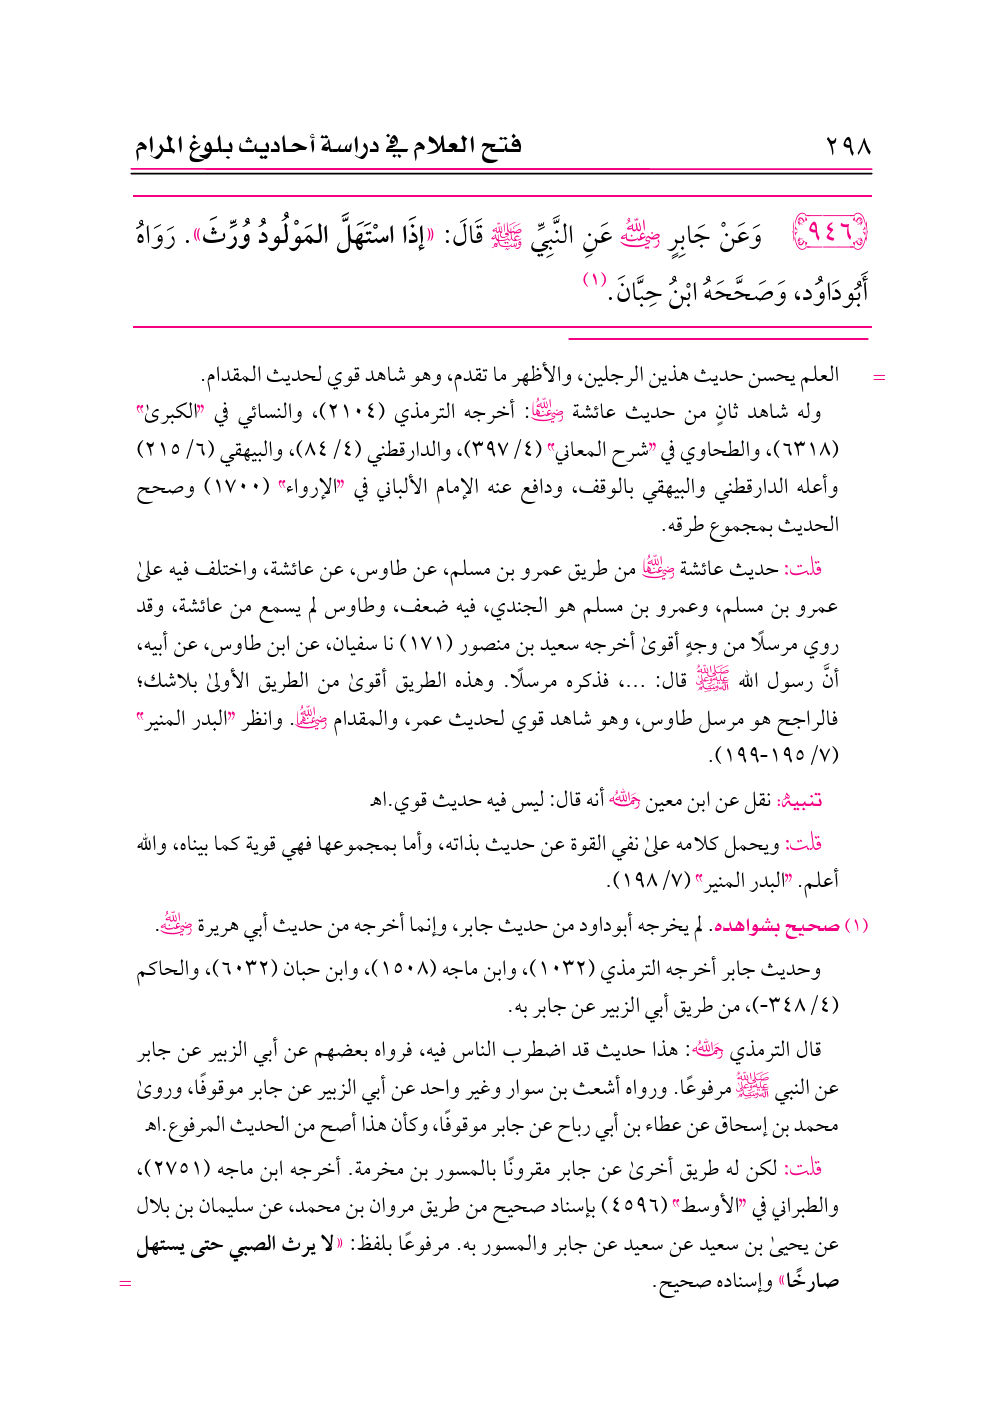 ٢٩٨ فتح العلام في دراسة أحاديث بلوغ المرام
﴿٩٤٦﴾ وَعَنْ جَابِرٍ رضي الله عنه عَنِ النَّبِيِّ ﷺ قَالَ: «إِذَا اسْتَهَلَّ المَوْلُودُ وُرِّثَ». رَوَاهُ
أَبُودَاوُد، وَصَحَّحَهُ ابْنُ حِبَّانَ.(١)
= العلم يحسن حديث هذين الرجلين، والأظهر ما تقدم، وهو شاهد قوي لحديث المقدام.
وله شاهد ثانٍ من حديث عائشة رضي الله عنها: أخرجه الترمذي (٢١٠٤)، والنسائي في "الكبرىٰ"
(٦٣١٨)، والطحاوي في "شرح المعاني" (٤/ ٣٩٧)، والدارقطني (٤/ ٨٤)، والبيهقي (٦/ ٢١٥)
وأعله الدارقطني والبيهقي بالوقف، ودافع عنه الإمام الألباني في "الإرواء" (١٧٠٠) وصحح
الحديث بمجموع طرقه.
قلت: حديث عائشة رضي الله عنها من طريق عمرو بن مسلم، عن طاوس، عن عائشة، واختلف فيه علىٰ
عمرو بن مسلم، وعمرو بن مسلم هو الجندي، فيه ضعف، وطاوس لم يسمع من عائشة، وقد
روي مرسلًا من وجهٍ أقوىٰ أخرجه سعيد بن منصور (١٧١) نا سفيان، عن ابن طاوس، عن أبيه،
أنَّ رسول الله ﷺ قال: ...، فذكره مرسلًا. وهذه الطريق أقوىٰ من الطريق الأولىٰ بلاشك؛
فالراجح هو مرسل طاوس، وهو شاهد قوي لحديث عمر، والمقدام رضي الله عنهما. وانظر "البدر المنير"
(٧/ ١٩٥-١٩٩).
تنبيه: نقل عن ابن معين رحمه الله أنه قال: ليس فيه حديث قوي.اهـ
قلت: ويحمل كلامه علىٰ نفي القوة عن حديث بذاته، وأما بمجموعها فهي قوية كما بيناه، والله
أعلم. "البدر المنير" (٧/ ١٩٨).
(١) صحيح بشواهده. لم يخرجه أبوداود من حديث جابر، وإنما أخرجه من حديث أبي هريرة رضي الله عنه.
وحديث جابر أخرجه الترمذي (١٠٣٢)، وابن ماجه (١٥٠٨)، وابن حبان (٦٠٣٢)، والحاكم
(٤/ ٣٤٨-)، من طريق أبي الزبير عن جابر به.
قال الترمذي رحمه الله: هذا حديث قد اضطرب الناس فيه، فرواه بعضهم عن أبي الزبير عن جابر
عن النبي ﷺ مرفوعًا. ورواه أشعث بن سوار وغير واحد عن أبي الزبير عن جابر موقوفًا، وروىٰ
محمد بن إسحاق عن عطاء بن أبي رباح عن جابر موقوفًا، وكأن هذا أصح من الحديث المرفوع.اهـ
قلت: لكن له طريق أخرىٰ عن جابر مقرونًا بالمسور بن مخرمة. أخرجه ابن ماجه (٢٧٥١)،
والطبراني في "الأوسط" (٤٥٩٦) بإسناد صحيح من طريق مروان بن محمد، عن سليمان بن بلال
عن يحيىٰ بن سعيد عن سعيد عن جابر والمسور به. مرفوعًا بلفظ: «لا يرث الصبي حتى يستهل
صارخًا» وإسناده صحيح. =